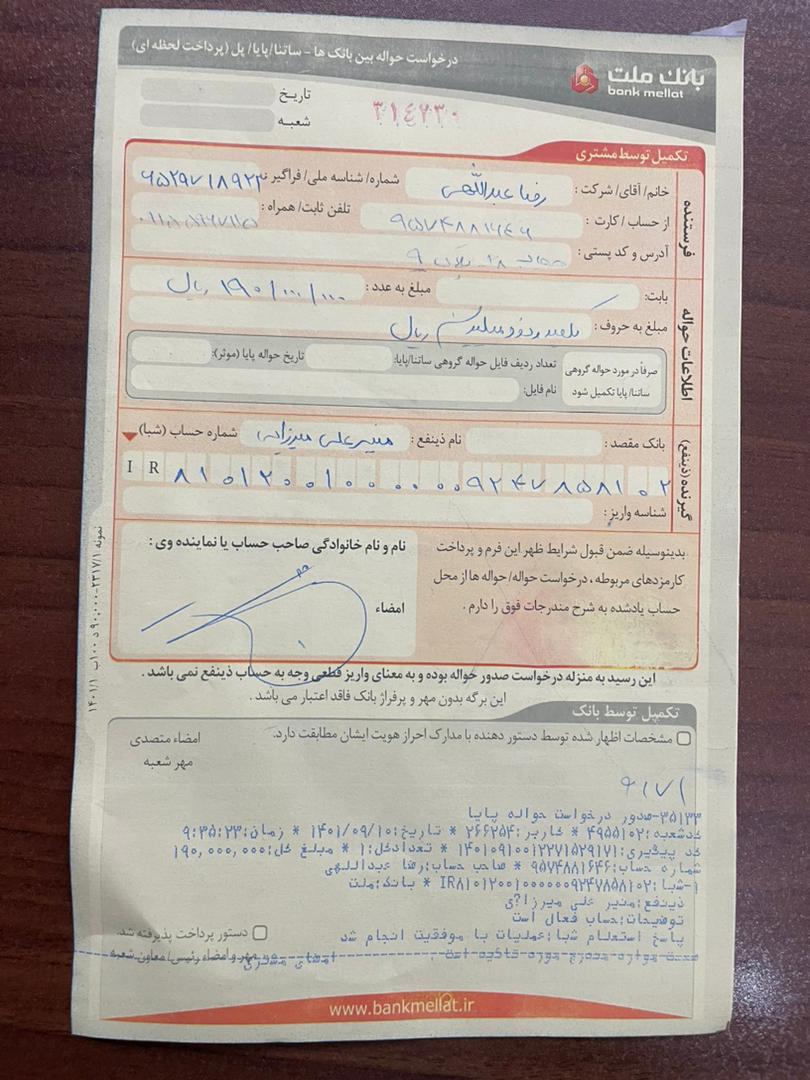 درخواست حواله بین بانک ها - ساتنا/پایا/پل (پرداخت لحظه ای)
بانک ملت
bank mellat
تاریخ
شعبه
۳۱۴۲۳۰
تکمیل توسط مشتری
فرستنده
خانم/آقای/شرکت: رضا عبداللهی شماره/شناسه ملی/فراگیر
از حساب/کارت: ۹۵۷۴۸۸۱۶۴۶ تلفن ثابت/همراه:
آدرس و کد پستی:
اطلاعات حواله
بابت: مبلغ به عدد: ۱۹۰/۰۰۰/۰۰۰ ریال
مبلغ به حروف: یکصد و نود میلیون ریال
صرفاً در مورد حواله گروهی ساتنا/پایا تکمیل شود
تعداد ردیف فایل حواله گروهی ساتنا/پایا: تاریخ حواله پایا (موثر):
نام فایل:
گیرنده (ذینفع)
بانک مقصد: نام ذینفع: منیر علی میرزایی شماره حساب (شبا)
IR ۸۱۰۱۲۰۰۱۰۰۰۰۰۰۹۲۴۷۸۵۸۱۰۲
شناسه واریز:
بدینوسیله ضمن قبول شرایط ظهر این فرم و پرداخت
کارمزدهای مربوطه، درخواست حواله/حواله ها از محل
حساب یادشده به شرح مندرجات فوق را دارم.
نام و نام خانوادگی صاحب حساب یا نماینده وی:
امضاء
این رسید به منزله درخواست صدور حواله بوده و به معنای واریز قطعی وجه به حساب ذینفع نمی باشد.
این برگه بدون مهر و پرفراژ بانک فاقد اعتبار می باشد.
تکمیل توسط بانک
مشخصات اظهار شده توسط دستور دهنده با مدارک احراز هویت ایشان مطابقت دارد.
امضاء متصدی
مهر شعبه
۳۵۱۳۳-صدور درخواست حواله پایا
کدشعبه:۴۹۵۵۱۰۲ * کاربر:۲۶۶۲۵۴ * تاریخ:۱۴۰۱/۰۹/۱۰ * زمان:۹:۳۵:۲۳
کد پیگیری:۱۴۰۱۰۹۱۰۰۱۲۲۷۱۵۲۹۱۷۱ * تعدادکل:۱ * مبلغ کل:۱۹۰,۰۰۰,۰۰۰
شماره حساب:۹۵۷۴۸۸۱۶۴۶ * صاحب حساب:رضا عبداللهی
۱-شبا:IR۸۱۰۱۲۰۰۱۰۰۰۰۰۰۹۲۴۷۸۵۸۱۰۲ * بانک:ملت
ذینفع:منیر علی میرزا؟ی
توضیحات:حساب فعال است
پاسخ استعلام شبا:عملیات با موفقیت انجام شد
دستور پرداخت پذیرفته شد.
مهر و امضاء رئیس/معاون شعبه
www.bankmellat.ir